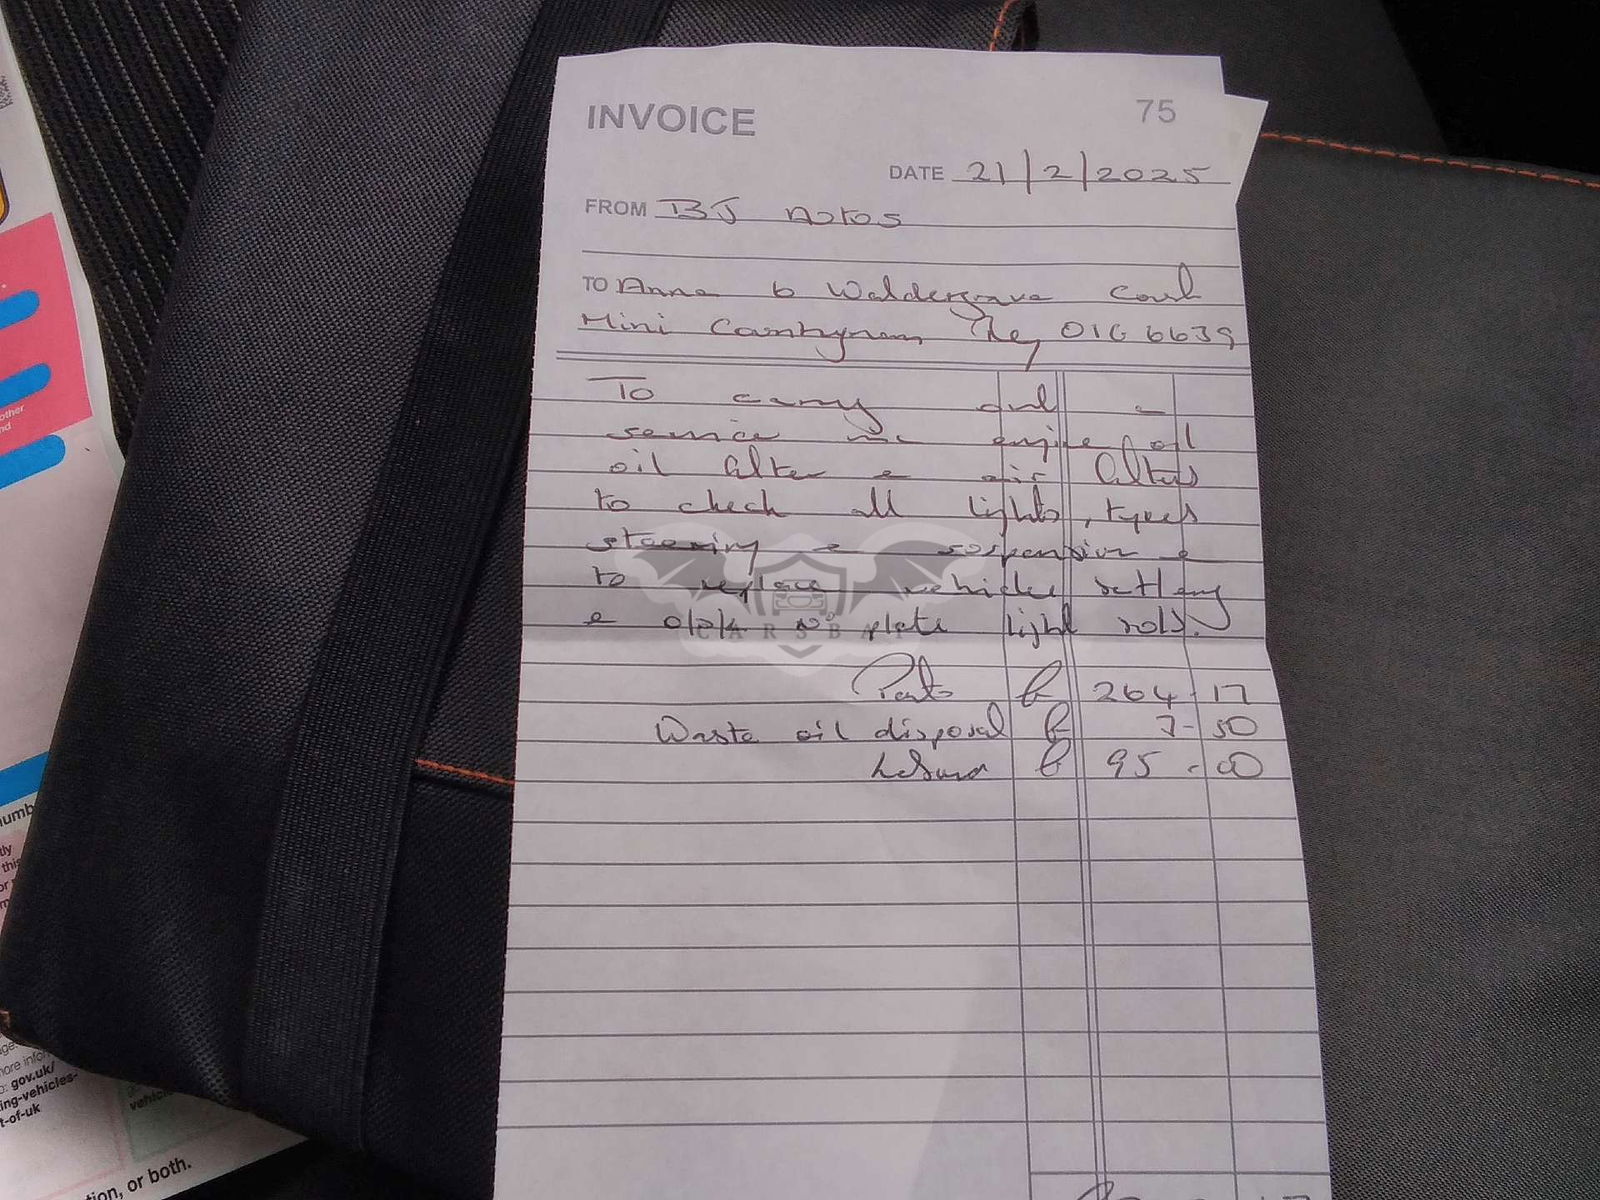 INVOICE 75
DATE 21/2/2025
FROM BJ Motos
TO Anna 6 Waldegrave Court
Mini Countryman Reg 016 6639
To carry out a
service inc engine oil
oil filter & air filters
to check all lights, tyres
steering & suspension &
to replace vehicles battery
& o/p/k No plate light
CARSBA
Parts £ 264-17
Waste oil disposal £ 7-50
Labour £ 95-00
other
nd
numb
tly
this
or
age
more infor
o: gov.uk/
ing-vehicles-
t-of-uk
vehicle
tion, or both.